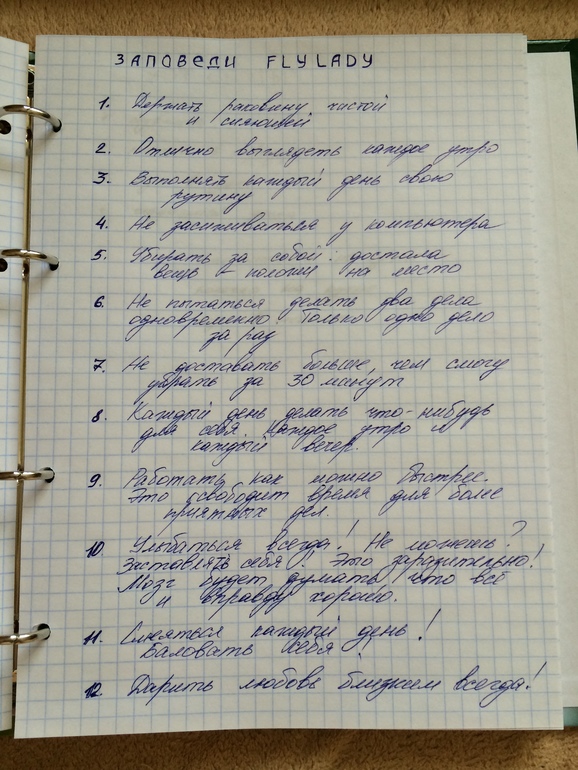 ЗАПОВЕДИ FLYLADY
1. Держать раковину чистой
и сияющей
2. Отлично выглядеть каждое утро
3. Выполнять каждый день свою
рутину
4. Не засиживаться у компьютера
5. Убирать за собой: достала
вещь – положи на место
6. Не пытаться делать два дела
одновременно Только одно дело
за раз
7. Не доставать больше, чем смогу
убрать за 30 минут
8. Каждый день делать что-нибудь
для себя. Каждое утро и
каждый вечер.
9. Работать как можно быстрее.
Это освободит время для более
приятных дел.
10 Улыбаться всегда! Не можешь?
Заставлять себя! Это заразительно!
Мозг будет думать что всё
и вправду хорошо.
11. Смеяться каждый день!
Баловать себя
12. Дарить любовь близким всегда!